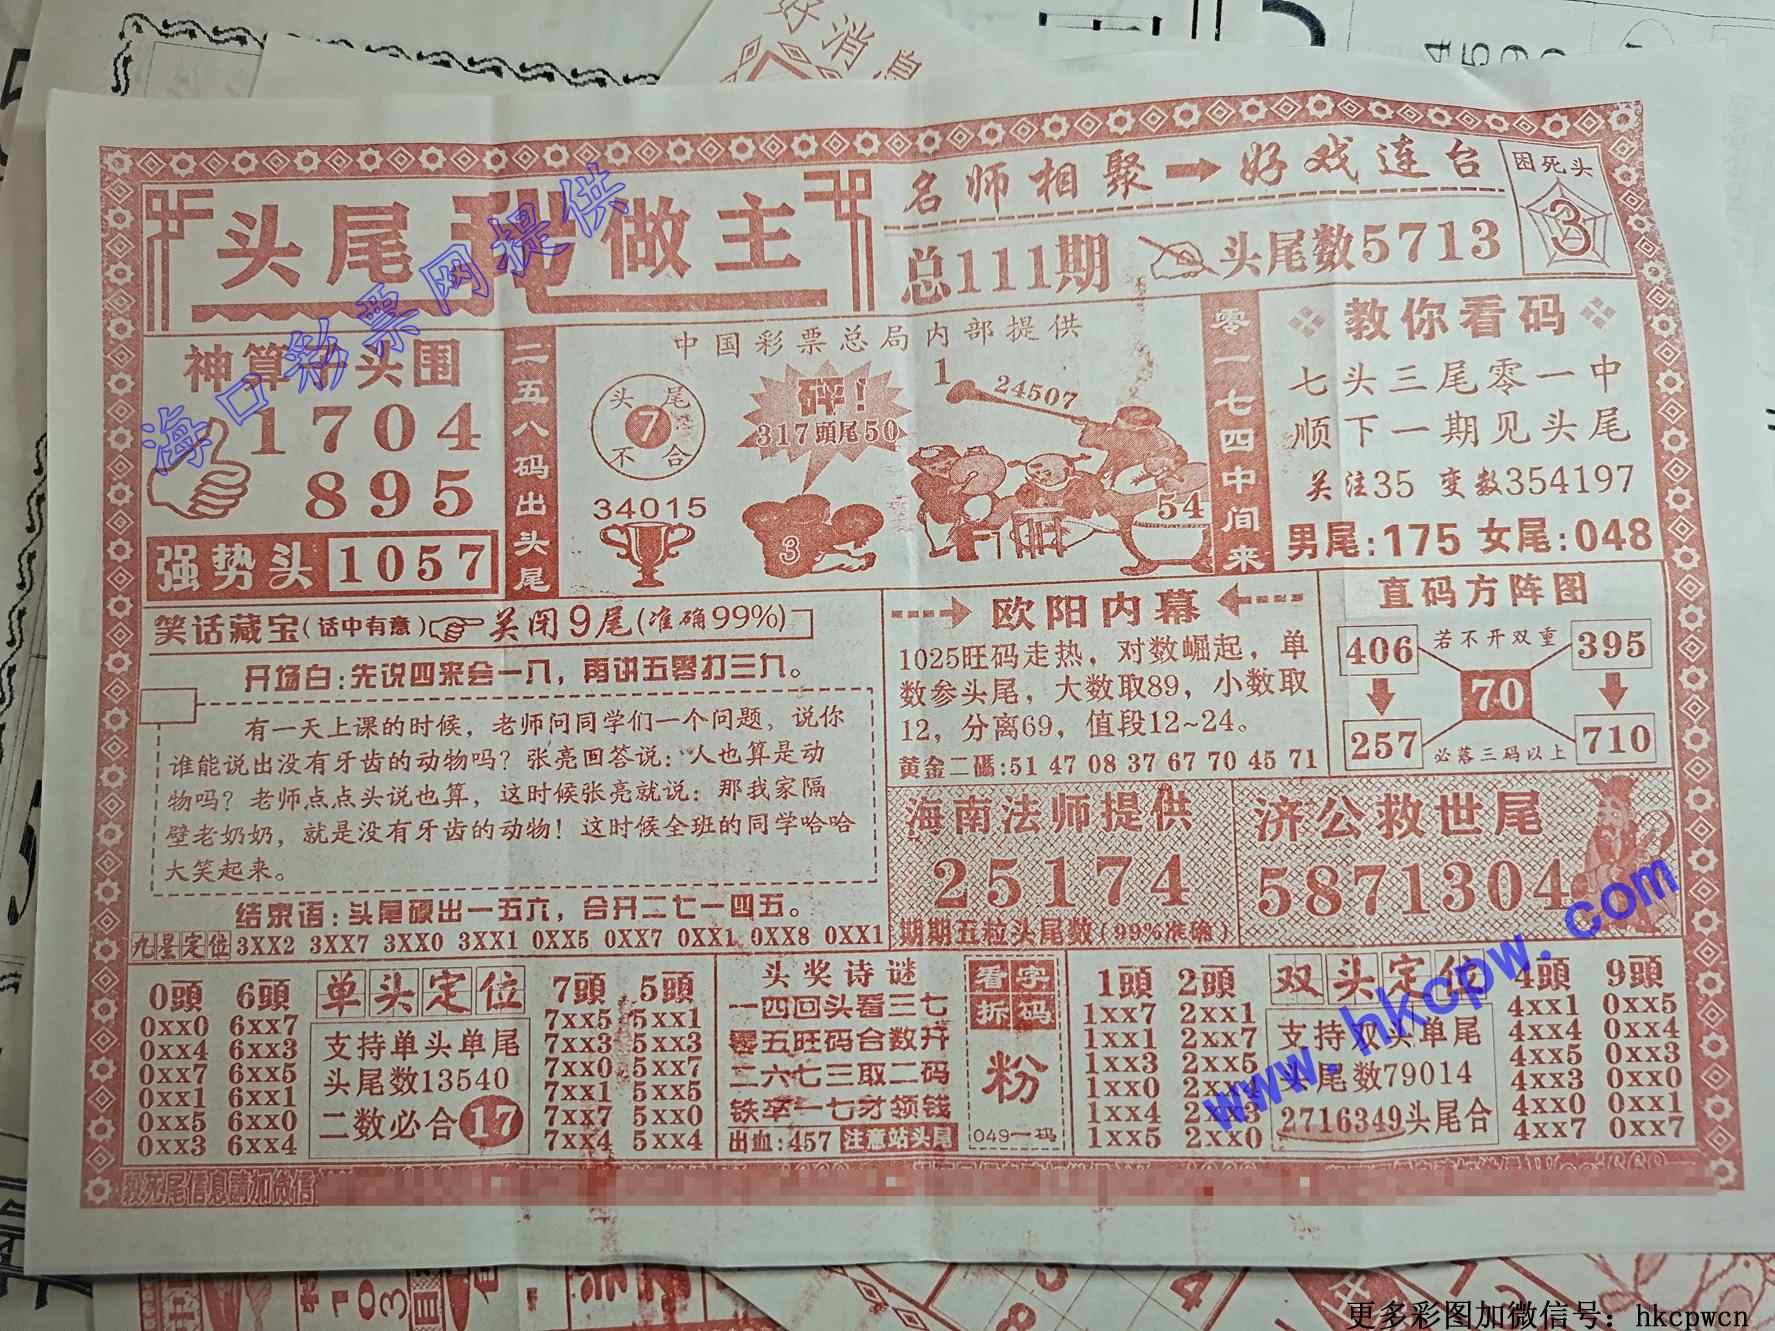 好消息
头尾我做主
名师相聚➡好戏连台
困死头
3
总111期
头尾数5713
海口彩票网提供
神算子头围
1704
895
强势头 1057
二五八码出头尾
中国彩票总局内部提供
头尾
7
不合
34015
砰!
317頭尾50
3
1
24507
54
零一七四中间来
教你看码
七头三尾零一中
顺下一期见头尾
关注35 变数354197
男尾:175 女尾:048
笑话藏宝(话中有意) 关闭9尾(准确99%)
开场白:先说四来会一八,再讲五零打三九。
有一天上课的时候,老师问同学们一个问题,说你
谁能说出没有牙齿的动物吗?张亮回答说:人也算是动
物吗?老师点点头说也算,这时候张亮就说:那我家隔
壁老奶奶,就是没有牙齿的动物!这时候全班的同学哈哈
大笑起来。
结束语:头尾硬出一五六,合开二七一四五。
九星定位 3XX2 3XX7 3XX0 3XX1 0XX5 0XX7 0XX1 0XX8 0XX1
欧阳内幕
1025旺码走热,对数崛起,单
数参头尾,大数取89,小数取
12,分离69,值段12~24。
黄金二碼:51 47 08 37 67 70 45 71
直码方阵图
406 若不开双重 395
70
257 必落三码以上 710
海南法师提供
25174
期期五粒头尾数(99%准确)
济公救世尾
5871304
0頭 6頭
0xx0 6xx7
0xx4 6xx3
0xx7 6xx5
0xx1 6xx1
0xx5 6xx0
0xx3 6xx4
单头定位
支持单头单尾
头尾数13540
二数必合17
7頭 5頭
7xx5 5xx1
7xx3 5xx3
7xx0 5xx7
7xx1 5xx5
7xx7 5xx0
7xx4 5xx4
头奖诗谜
一四回头看三七
零五旺码合数开
二六七三取二码
铁卒一七才领钱
出血:457 注意站头尾
看字拆码
粉
049一码
1頭 2頭
1xx7 2xx1
1xx1 2xx7
1xx3 2xx5
1xx0
1xx4
1xx5 2xx0
双头定位
支持双头单尾
头尾数79014
2716349头尾合
4頭 9頭
4xx1 0xx5
4xx4 0xx4
4xx5 0xx3
4xx3 0xx0
4xx0 0xx1
4xx7 0xx7
殺死尾信息請加微信
www.hkcpw.com
更多彩图加微信号:hkcpwcn